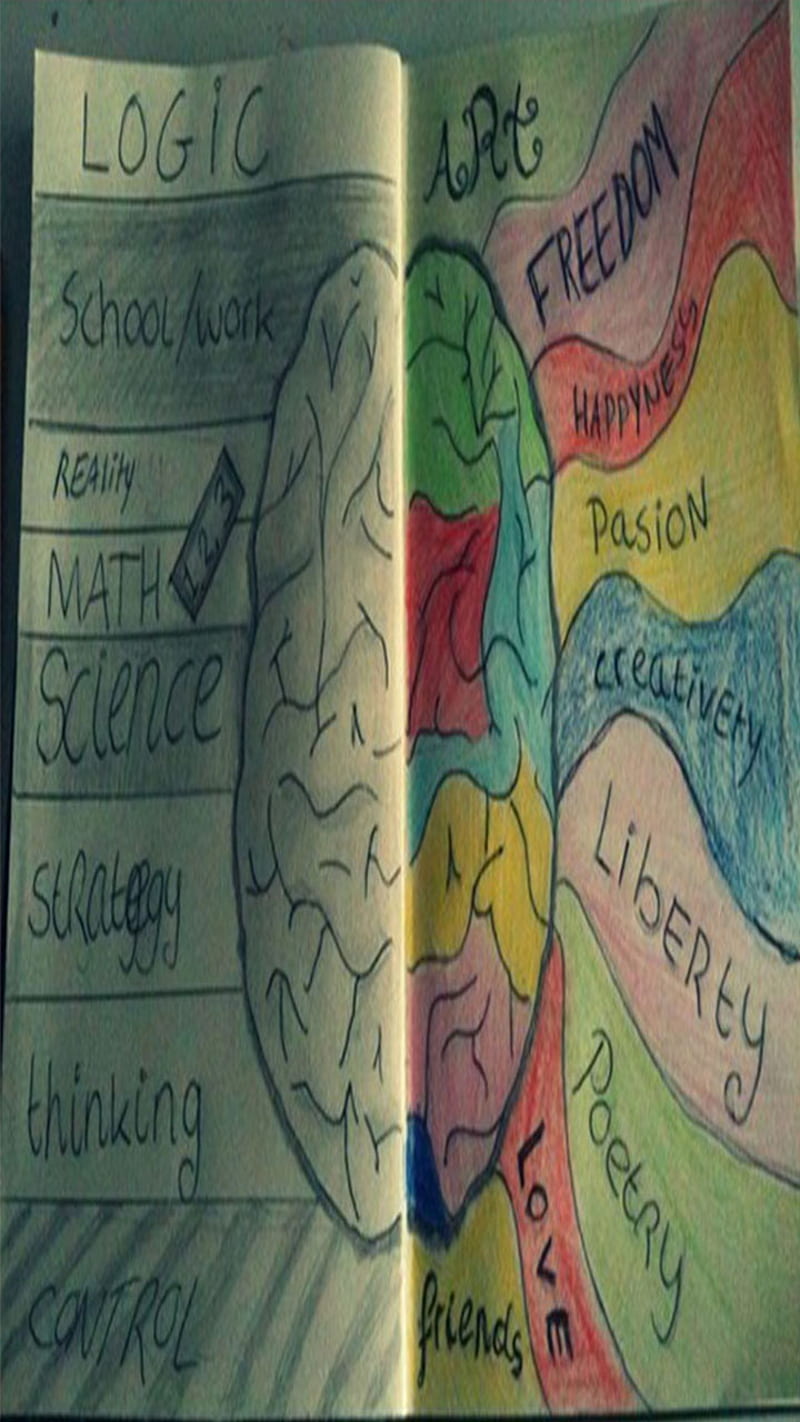 LOGIC
School/work
REAlity
MATH
1 2 3
Science
stRategy
thinking
CONTROL
ARt
FREEDOM
HAPPYNESS
PasioN
creativity
LibERtY
PoetRy
LovE
friends